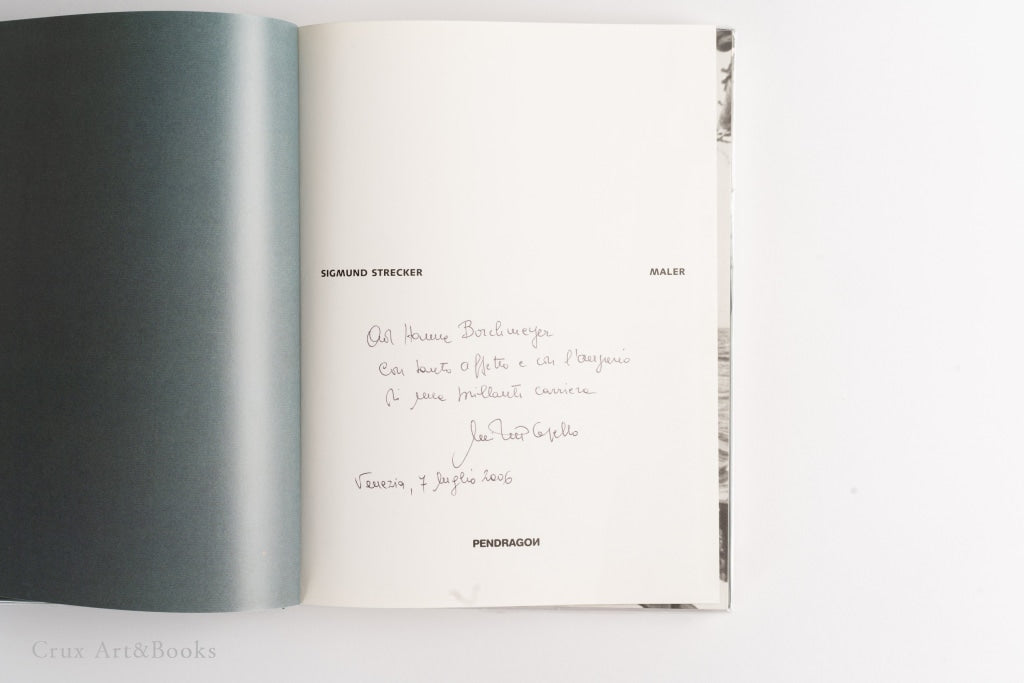 SIGMUND STRECKER MALER
Ad Hanne Borchmeyer
Con tanto affetto e con l'augurio
di una brillante carriera
Venezia, 7 luglio 2006
PENDRAGON
Crux Art&Books